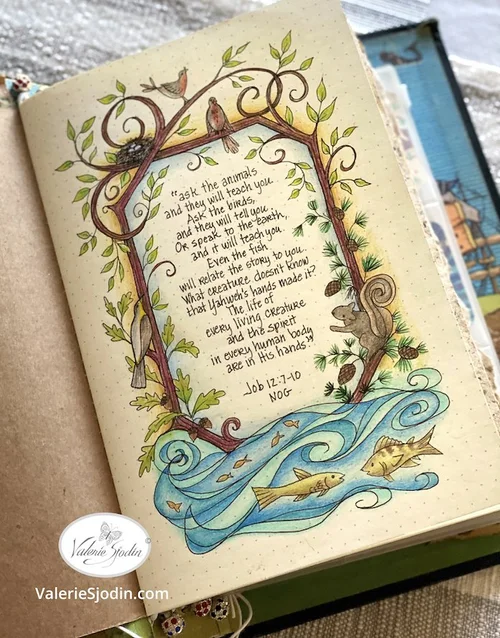 "ask the animals
and they will teach you
Ask the birds,
and they will tell you.
Or speak to the earth,
and it will teach you
Even the fish
will relate the story to you.
What creature doesn't know
that Yahweh's hands made it?
The life of
every living creature
and the spirit
in every human body
are in His hands."
Job 12:7-10
NOG
Valerie Sjodin
ValerieSjodin.com